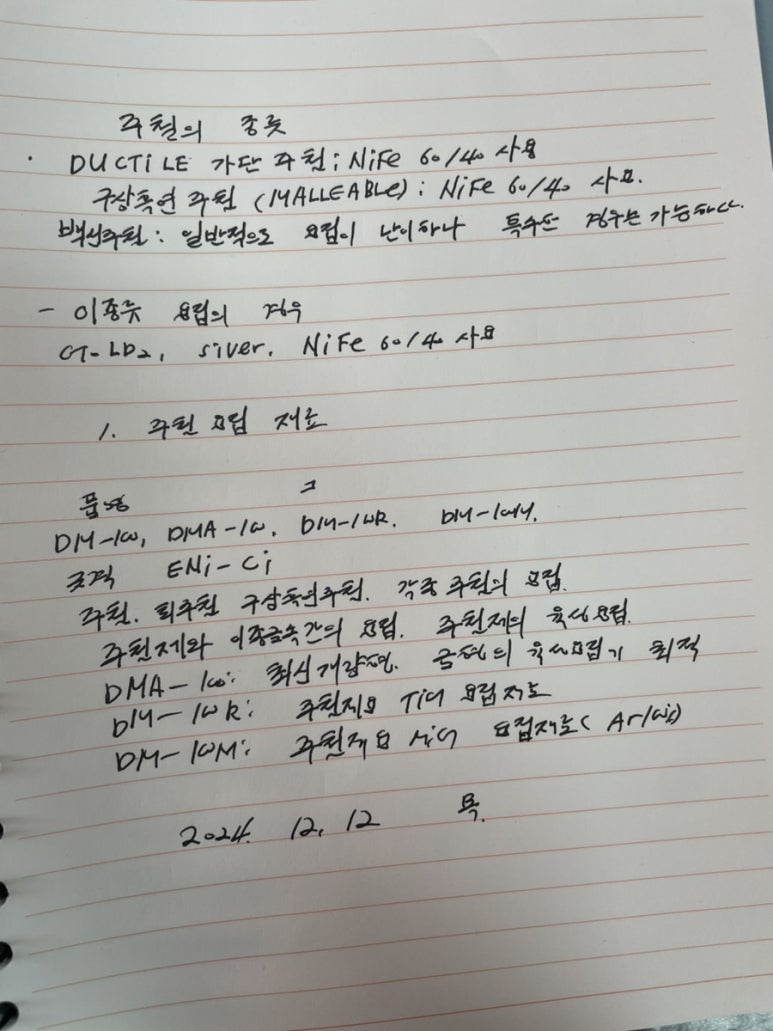 주철의 종류
· DUCTiLE 가단 주철 : NiFe 60/40 사용
구상흑연 주철 (MALLEABLe) : NiFe 60/40 사용.
백선주철 : 일반적으로 용접이 난이하나 특수한 경우는 가능하다.
- 이종류 용접의 경우
CT-LD2, siver, NiFe 60/40 사용
1. 주철 용접 재료
품명
DM-100, DMA-100, DM-100R. DM-100M.
규격 ENi-Ci
주철. 회주철 구상흑연주철. 각종 주철의 용접.
주철제와 이종금속간의 용접. 주철제의 육성용접.
DMA-100: 최신개량형. 금형의 육성용접기 최적
DM-100R: 주철제용 TiG 용접재료
DM-100M: 주철제용 MiG 용접재료( Ar/
2024. 12. 12 목.